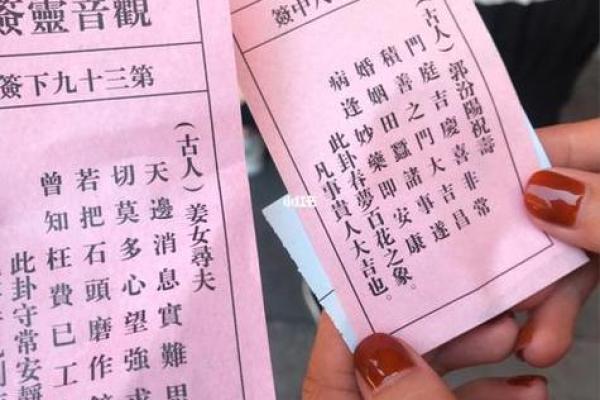 觀音靈簽
第三十九下簽
(古人)姜女尋夫
天邊消息實難思
切莫多心望強求
若把石頭磨作
曾知枉費已工
此卦守常安靜
八中簽
(古人)郭汾陽祝壽
門庭吉慶喜非常
積善之門大吉昌
婚姻田蠶諸事遂
病逢妙藥即安康
此卦春夢百花之象。
凡事貴人大吉也。